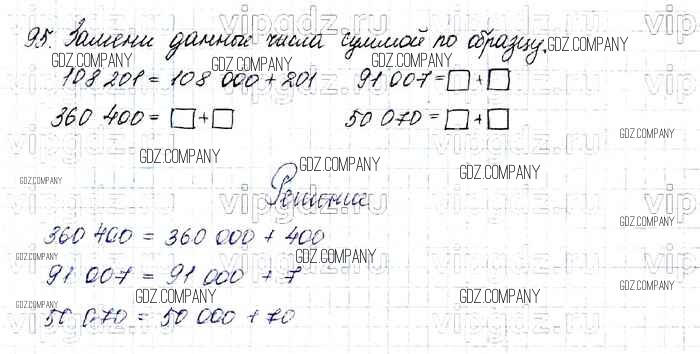 95. Замени данные числа суммой по образцу.
108 201 = 108 000 + 201 91 007 = □ + □
360 400 = □ + □ 50 070 = □ + □
Решение
360 400 = 360 000 + 400
91 007 = 91 000 + 7
50 070 = 50 000 + 70
vipgdz.ru
GDZ.COMPANY